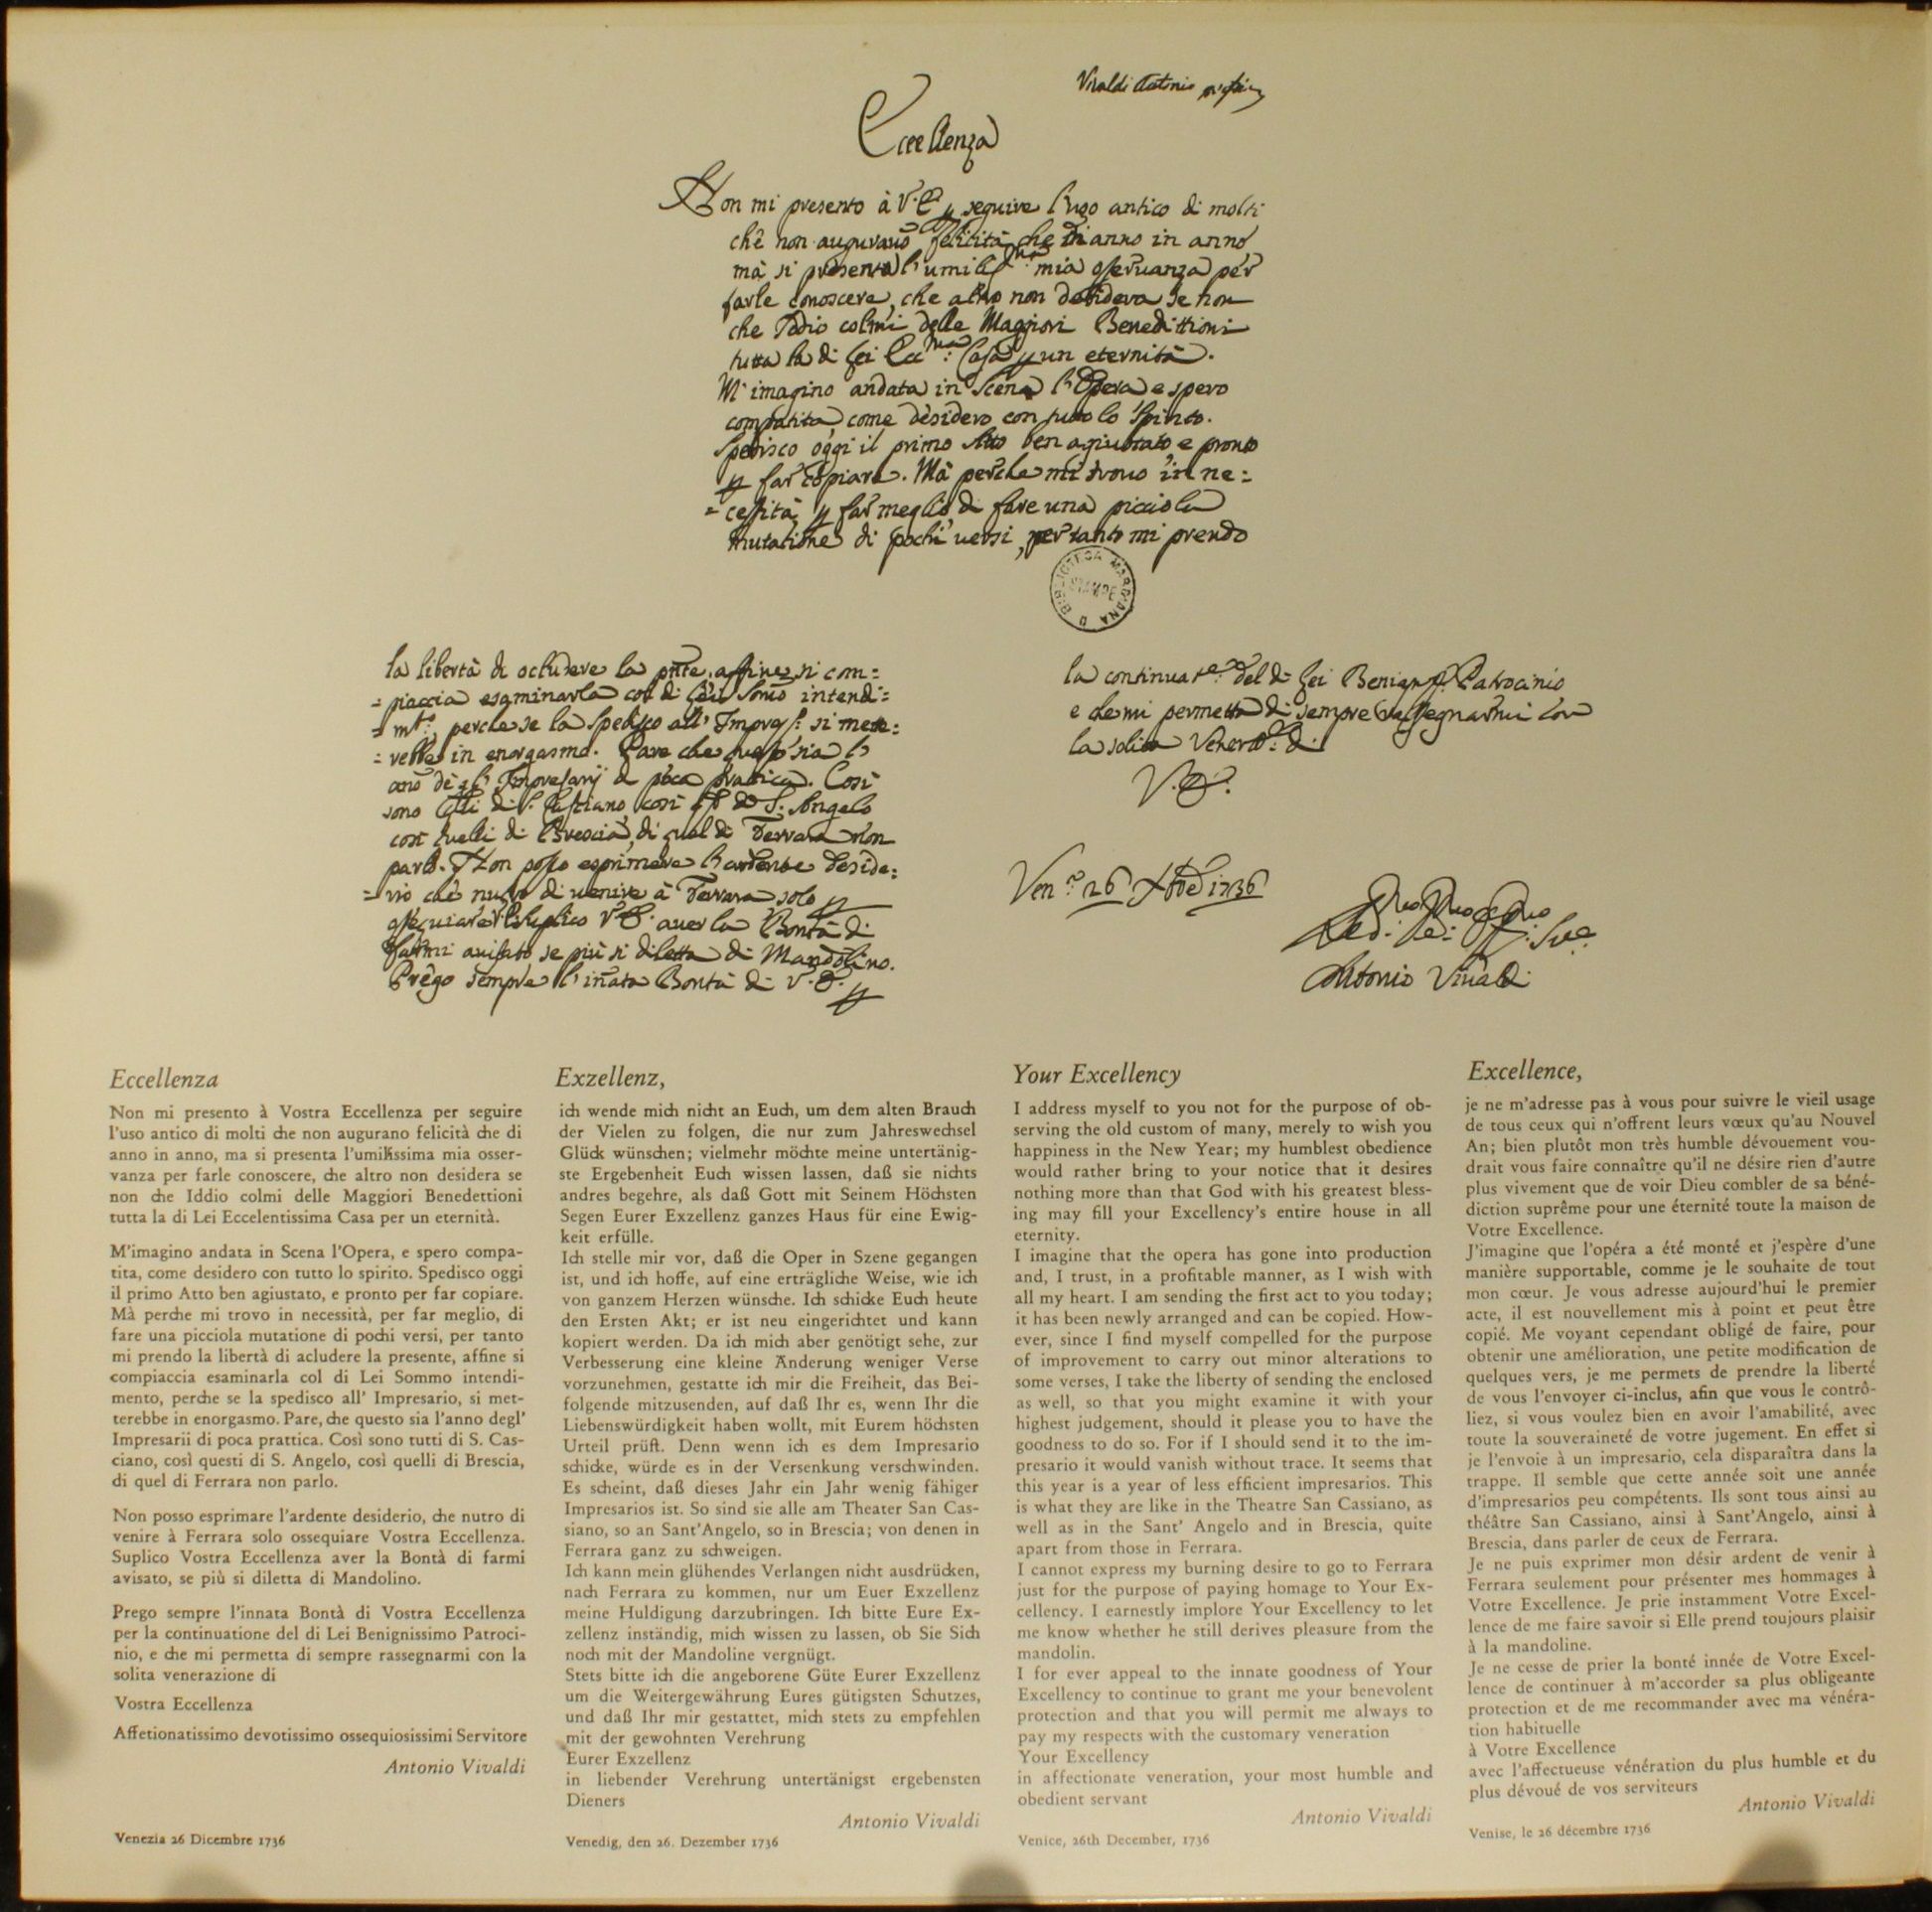 Vivaldi Antonio
Eccellenza
Non mi presento à V.E. seguire l'uso antico di molti
che non augurano felicità che di anno in anno
mà si presenta l'umiliss.ma mia osseruanza per
farle conoscere, che altro non desidera se non
che Iddio colmi delle Maggiori Benedittioni
tutta la di Lei Ecc.ma Casa un eternità.
M'imagino andata in Scena l'Opera e spero
compatita, come desidero con tutto lo Spirito.
Spedisco oggi il primo Atto ben agiustato e pronto
far copiare. Mà perche mi trouo in ne=
=cessità far meglio di fare una picciola
mutatione di pochi uersi, per tanto mi prendo
BIBLIOTECA MARCIANA
la libertà di acludere la pnte, affine si com=
=piaccia esaminarla col di Lei Somo intendi=
=mto: perche se la spedisco all' Impress: si mette=
=rebbe in enorgasmo. Pare che questo sia l'
ano de gl' Impresarij di poca prattica. Così
sono di S. Cassiano, così di S. Angelo
così quelli di Brescia, di quel di Ferrara non
parlo. Non posso esprimere l'ardente deside=
=rio che nutro di uenire à Ferrara solo
ossequiare. Suplico V.E. auer la Bontà di
farmi auisato se più si diletta di Mandolino.
Prego sempre l'inata Bontà di V.E.
la continuat.e del di Lei Benigniss. Patrocinio
e che mi permetta di sempre rassegnarmi con
la solita Venerat.e di
V.E.
Ven.a 26 Xbre 1736
Antonio Viualdi
Eccellenza
Non mi presento à Vostra Eccellenza per seguire
l'uso antico di molti che non augurano felicità che di
anno in anno, ma si presenta l'umilissima mia osser-
vanza per farle conoscere, che altro non desidera se
non che Iddio colmi delle Maggiori Benedettioni
tutta la di Lei Eccelentissima Casa per un eternità.
M'imagino andata in Scena l'Opera, e spero compa-
tita, come desidero con tutto lo spirito. Spedisco oggi
il primo Atto ben agiustato, e pronto per far copiare.
Mà perche mi trovo in necessità, per far meglio, di
fare una picciola mutatione di pochi versi, per tanto
mi prendo la libertà di acludere la presente, affine si
compiaccia esaminarla col di Lei Sommo intendi-
mento, perche se la spedisco all' Impresario, si met-
terebbe in enorgasmo. Pare, che questo sia l'anno degl'
Impresarii di poca prattica. Così sono tutti di S. Cas-
ciano, così questi di S. Angelo, così quelli di Brescia,
di quel di Ferrara non parlo.
Non posso esprimare l'ardente desiderio, che nutro di
venire à Ferrara solo ossequiare Vostra Eccellenza.
Suplico Vostra Eccellenza aver la Bontà di farmi
avisato, se più si diletta di Mandolino.
Prego sempre l'innata Bontà di Vostra Eccellenza
per la continuatione del di Lei Benignissimo Patroci-
nio, e che mi permetta di sempre rassegnarmi con la
solita venerazione di
Vostra Eccellenza
Affetionatissimo devotissimo ossequiosissimi Servitore
Antonio Vivaldi
Venezia 26 Dicembre 1736
Exzellenz,
ich wende mich nicht an Euch, um dem alten Brauch
der Vielen zu folgen, die nur zum Jahreswechsel
Glück wünschen; vielmehr möchte meine untertänig-
ste Ergebenheit Euch wissen lassen, daß sie nichts
andres begehre, als daß Gott mit Seinem Höchsten
Segen Eurer Exzellenz ganzes Haus für eine Ewig-
keit erfülle.
Ich stelle mir vor, daß die Oper in Szene gegangen
ist, und ich hoffe, auf eine erträgliche Weise, wie ich
von ganzem Herzen wünsche. Ich schicke Euch heute
den Ersten Akt; er ist neu eingerichtet und kann
kopiert werden. Da ich mich aber genötigt sehe, zur
Verbesserung eine kleine Änderung weniger Verse
vorzunehmen, gestatte ich mir die Freiheit, das Bei-
folgende mitzusenden, auf daß Ihr es, wenn Ihr die
Liebenswürdigkeit haben wollt, mit Eurem höchsten
Urteil prüft. Denn wenn ich es dem Impresario
schicke, würde es in der Versenkung verschwinden.
Es scheint, daß dieses Jahr ein Jahr wenig fähiger
Impresarios ist. So sind sie alle am Theater San Cas-
siano, so an Sant'Angelo, so in Brescia; von denen in
Ferrara ganz zu schweigen.
Ich kann mein glühendes Verlangen nicht ausdrücken,
nach Ferrara zu kommen, nur um Euer Exzellenz
meine Huldigung darzubringen. Ich bitte Eure Ex-
zellenz inständig, mich wissen zu lassen, ob Sie Sich
noch mit der Mandoline vergnügt.
Stets bitte ich die angeborene Güte Eurer Exzellenz
um die Weitergewährung Eures gütigsten Schutzes,
und daß Ihr mir gestattet, mich stets zu empfehlen
mit der gewohnten Verehrung
Eurer Exzellenz
in liebender Verehrung untertänigst ergebensten
Dieners
Antonio Vivaldi
Venedig, den 26. Dezember 1736
Your Excellency
I address myself to you not for the purpose of ob-
serving the old custom of many, merely to wish you
happiness in the New Year; my humblest obedience
would rather bring to your notice that it desires
nothing more than that God with his greatest bless-
ing may fill your Excellency's entire house in all
eternity.
I imagine that the opera has gone into production
and, I trust, in a profitable manner, as I wish with
all my heart. I am sending the first act to you today;
it has been newly arranged and can be copied. How-
ever, since I find myself compelled for the purpose
of improvement to carry out minor alterations to
some verses, I take the liberty of sending the enclosed
as well, so that you might examine it with your
highest judgement, should it please you to have the
goodness to do so. For if I should send it to the im-
presario it would vanish without trace. It seems that
this year is a year of less efficient impresarios. This
is what they are like in the Theatre San Cassiano, as
well as in the Sant' Angelo and in Brescia, quite
apart from those in Ferrara.
I cannot express my burning desire to go to Ferrara
just for the purpose of paying homage to Your Ex-
cellency. I earnestly implore Your Excellency to let
me know whether he still derives pleasure from the
mandolin.
I for ever appeal to the innate goodness of Your
Excellency to continue to grant me your benevolent
protection and that you will permit me always to
pay my respects with the customary veneration
Your Excellency
in affectionate veneration, your most humble and
obedient servant
Antonio Vivaldi
Venice, 26th December, 1736
Excellence,
je ne m'adresse pas à vous pour suivre le vieil usage
de tous ceux qui n'offrent leurs vœux qu'au Nouvel
An; bien plutôt mon très humble dévouement vou-
drait vous faire connaître qu'il ne désire rien d'autre
plus vivement que de voir Dieu combler de sa béné-
diction suprême pour une éternité toute la maison de
Votre Excellence.
J'imagine que l'opéra a été monté et j'espère d'une
manière supportable, comme je le souhaite de tout
mon cœur. Je vous adresse aujourd'hui le premier
acte, il est nouvellement mis à point et peut être
copié. Me voyant cependant obligé de faire, pour
obtenir une amélioration, une petite modification de
quelques vers, je me permets de prendre la liberté
de vous l'envoyer ci-inclus, afin que vous le contrô-
liez, si vous voulez bien en avoir l'amabilité, avec
toute la souveraineté de votre jugement. En effet si
je l'envoie à un impresario, cela disparaîtra dans la
trappe. Il semble que cette année soit une année
d'impresarios peu compétents. Ils sont tous ainsi au
théâtre San Cassiano, ainsi à Sant'Angelo, ainsi à
Brescia, dans parler de ceux de Ferrara.
Je ne puis exprimer mon désir ardent de venir à
Ferrara seulement pour présenter mes hommages à
Votre Excellence. Je prie instamment Votre Excel-
lence de me faire savoir si Elle prend toujours plaisir
à la mandoline.
Je ne cesse de prier la bonté innée de Votre Excel-
lence de continuer à m'accorder sa plus obligeante
protection et de me recommander avec ma vénéra-
tion habituelle
à Votre Excellence
avec l'affectueuse vénération du plus humble et du
plus dévoué de vos serviteurs
Antonio Vivaldi
Venise, le 26 décembre 1736